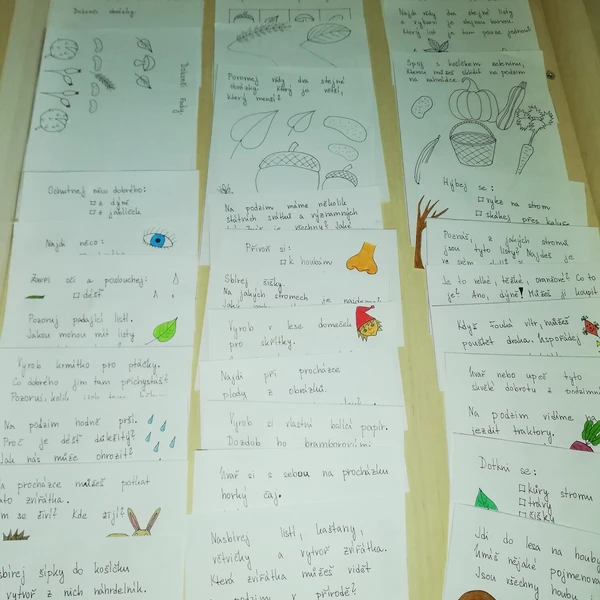 Dokonči obrázky.
Dokonči řady.
Ochutnej něco dobrého:
z dýně
z jablíček
Najdi něco:
Zavři oči a poslouchej:
déšť
Pozoruj padající listí.
Jakou mohou mít listy
Vyrob krmítko pro ptáčky.
Co dobrého jim tam přichystáš?
Pozoruj, kolik
Na podzim hodně prší.
Proč je déšť důležitý?
Jak nás může ohrozit?
a procházce můžeš potkat
ato zvířátka.
m se živí? Kde žijí?
sbírej šípky do košíčku
vytvoř z nich náhrdelník.
Porovnej vždy dva stejné
obrázky. Který je větší,
který menší?
Na podzim máme několik
státních svátků a významných
Přivoň si:
k houbám
Sbírej šišky.
Na jakých stromech
je najdeme?
Vyrob v lese domeček
pro skřítky.
Najdi při procházce
plody z obrázků.
Vyrob si vlastní balící papír.
Dozdob ho bramborovými
Uvař si s sebou na procházku
horký čaj.
Nasbírej listí, kaštany,
větvičky a vytvoř zvířátka.
Která zvířátka můžeš vidět
podzim v přírodě?
Najdi vždy dva stejné listy
a vybarvi je stejnou barvou.
Který list je tam pouze jednou?
Spoj s košíčkem zeleninu,
kterou můžeš sklidit na podzim
na zahrádce.
Hýbej se:
na strom
skákej přes kaluže
Poznáš, z jakých stromů
jsou tyto listy? Najdeš je
ve svém
Je to velké, těžké, oranžové? Co to
je? Ano, dýně! Můžeš ji koupit
Když fouká vítr, můžeš
pouštět draka. Uspořádej
Uvař nebo upeč tyto
skvělé dobroty z podzimní
Na podzim vídáme na
jezdit traktory.
Dotkni se:
kůry stromu
trávy
šišky
Jdi do lesa na houby
Umíš nějaké pojmenova
Jsou všechny houby